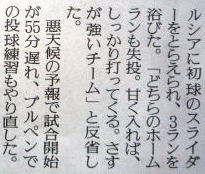 ルシアに初球のスライダ
ーをとらえられ、3ランを
浴びた。「どちらのホーム
ランも失投。甘く入れば、
しっかり打ってくる。さす
が強いチーム」と反省し
た。
悪天候の予報で試合開始
が55分遅れ、ブルペンで
の投球練習もやり直した。